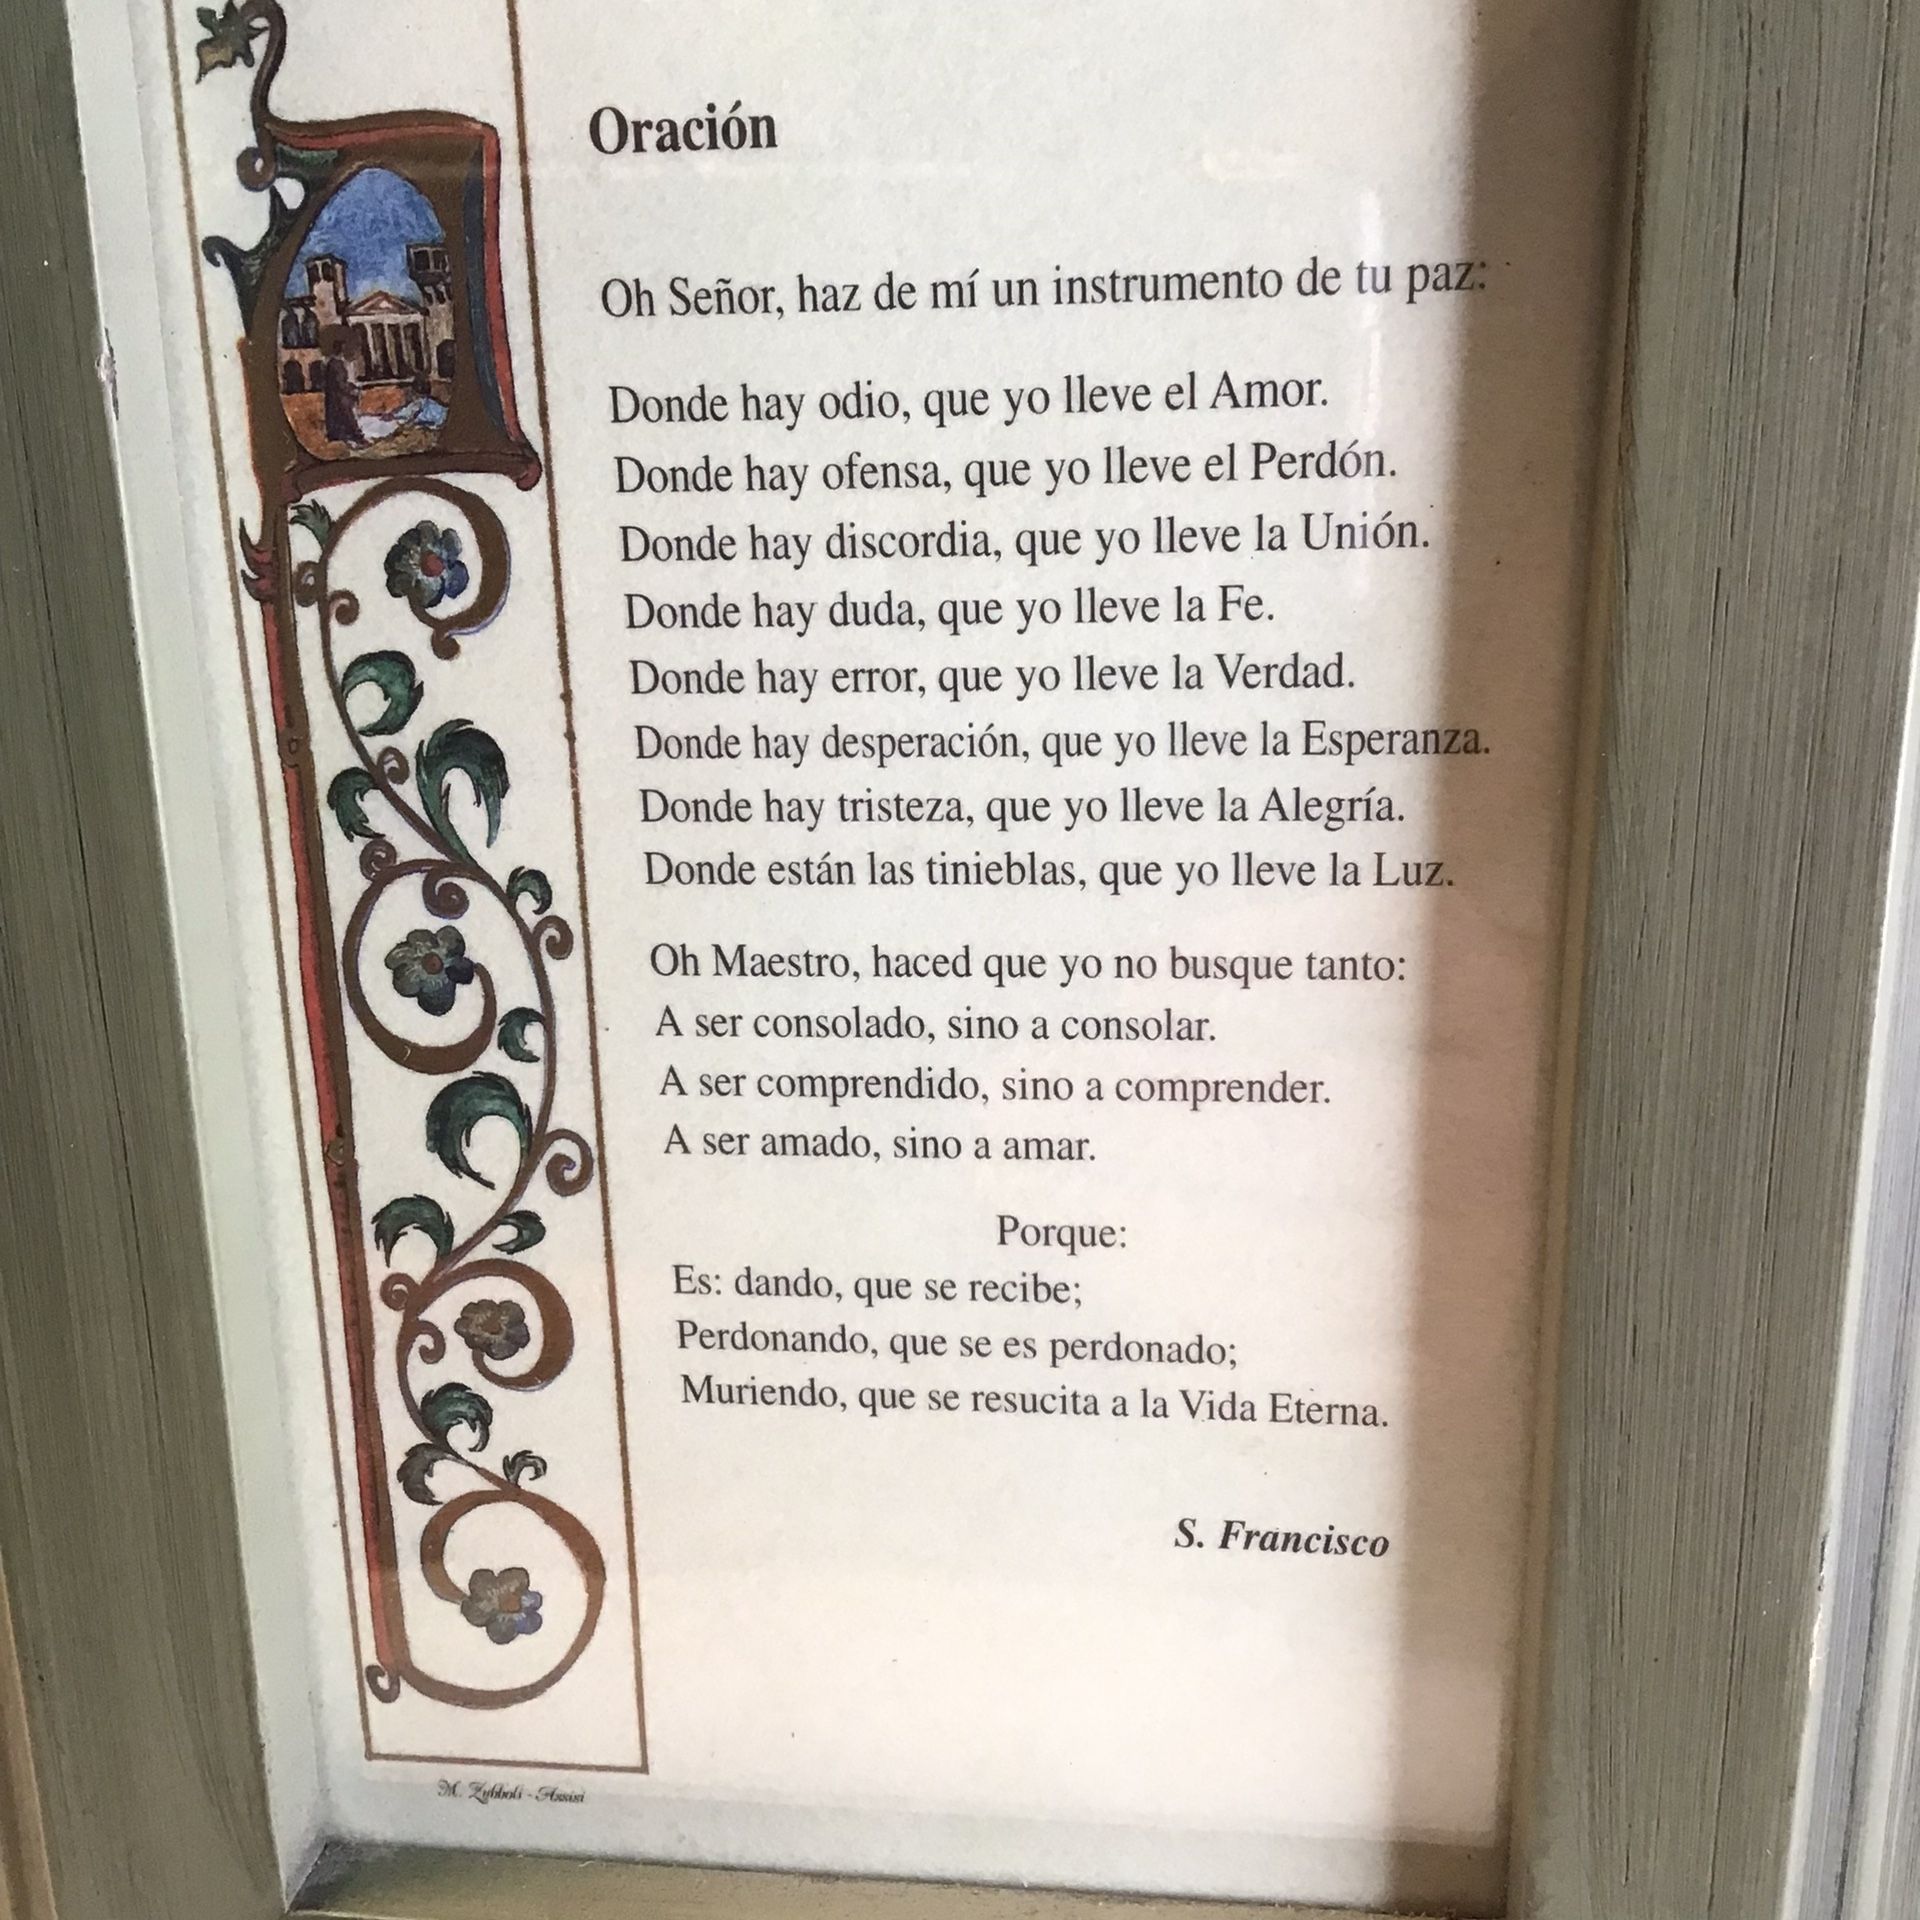 Oración
Oh Señor, haz de mí un instrumento de tu paz:
Donde hay odio, que yo lleve el Amor.
Donde hay ofensa, que yo lleve el Perdón.
Donde hay discordia, que yo lleve la Unión.
Donde hay duda, que yo lleve la Fe.
Donde hay error, que yo lleve la Verdad.
Donde hay desperación, que yo lleve la Esperanza.
Donde hay tristeza, que yo lleve la Alegría.
Donde están las tinieblas, que yo lleve la Luz.
Oh Maestro, haced que yo no busque tanto:
A ser consolado, sino a consolar.
A ser comprendido, sino a comprender.
A ser amado, sino a amar.
Porque:
Es: dando, que se recibe;
Perdonando, que se es perdonado;
Muriendo, que se resucita a la Vida Eterna.
S. Francisco
M. Zubboli - Assisi